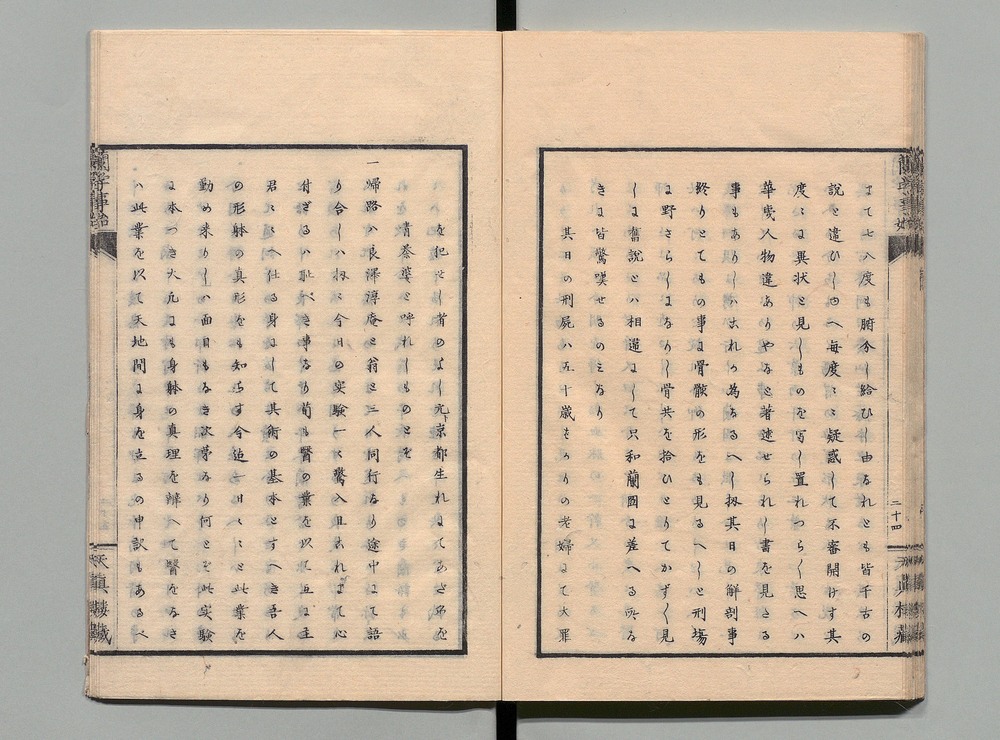 蘭學事始
二十四
天眞樓藏
まて七八度も腑分し給ひし由なれとも皆千古の
説と違ひしゆへ毎度〻〻疑惑して不審開けす其
度〻〻異状と見しものを寫し置れつらく思へハ
華夷人物違ありやなと著述せられし書を見さる
事もありしハこれか為なるへし扨其日の解剖事
終りとてもの事に骨骸の形をも見るへしと刑塲
に野さらしになりし骨共を拾ひとりてかずく見
しに舊説とハ相違にして只和蘭圖に差へる所な
きに皆驚嘆せるのミなり
其日の刑屍ハ五十歳はかりの老婦にて大罪
を犯せし者のよし元ト京都生れにてあだ名を
青茶婆と呼れしものとそ
一歸路ハ良澤淳庵と翁と三人同行なり途中にて語
り合しハ扨〻今日の実驗一〻驚入且これまて心
付さるハ耻へき事なり苟も醫の業を以て互に主
君〻〻へ仕る身にして其術の基本とすへき吾人
の形躰の真形をも知らす今迠一日〻〻と此業を
勤め来りしハ面目もなき次第なり何とそ此実驗
に本つき大凡にも身躰の真理を辨へて醫をなさ
ハ此業を以て天地間に身を立るの申訳もあるへ
蘭學事始
天眞樓藏